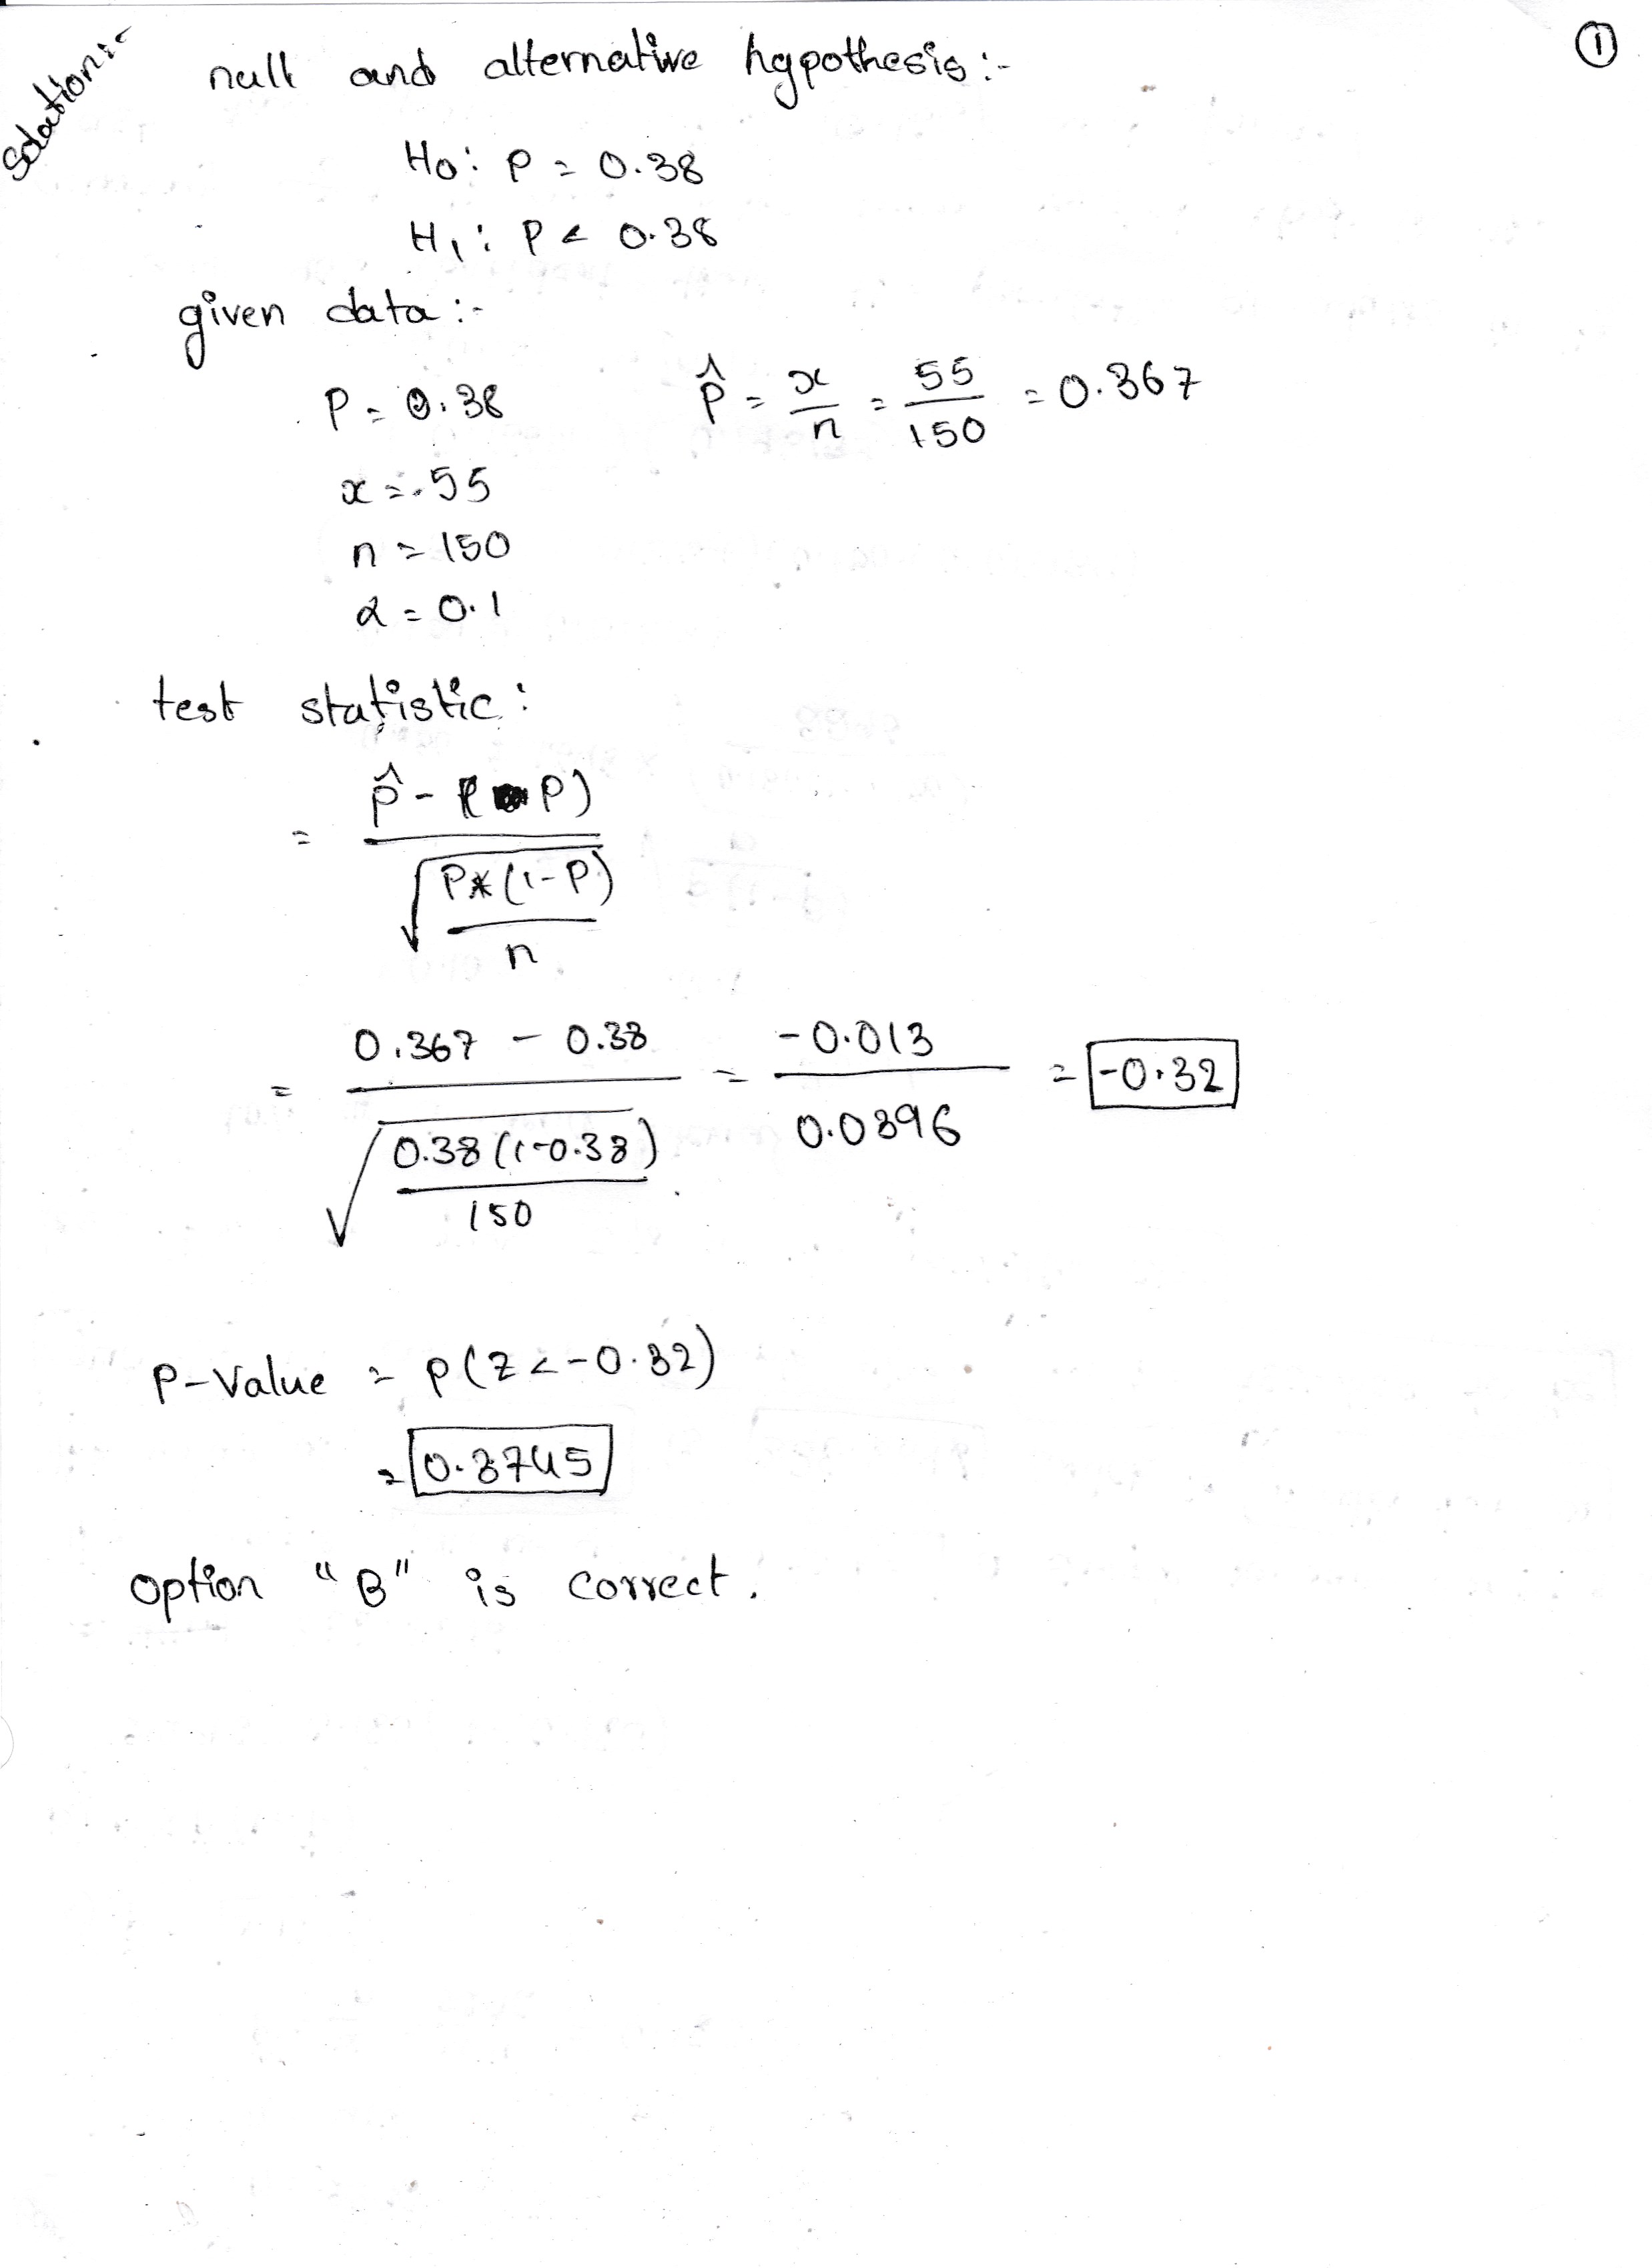 Solution:-
①
null and alternative hypothesis:-
H0: P = 0.38
H1: P < 0.38
given data:-
P = 0.38
p̂ = x/n = 55/150 = 0.367
x = 55
n = 150
α = 0.1
test statistic:
= p̂ - (P) / √(P*(1-P)/n)
= 0.367 - 0.38 / √(0.38(1-0.38)/150) = -0.013 / 0.0396 = -0.32
P-Value = P(Z < -0.32)
= 0.3745
Option "B" is correct.